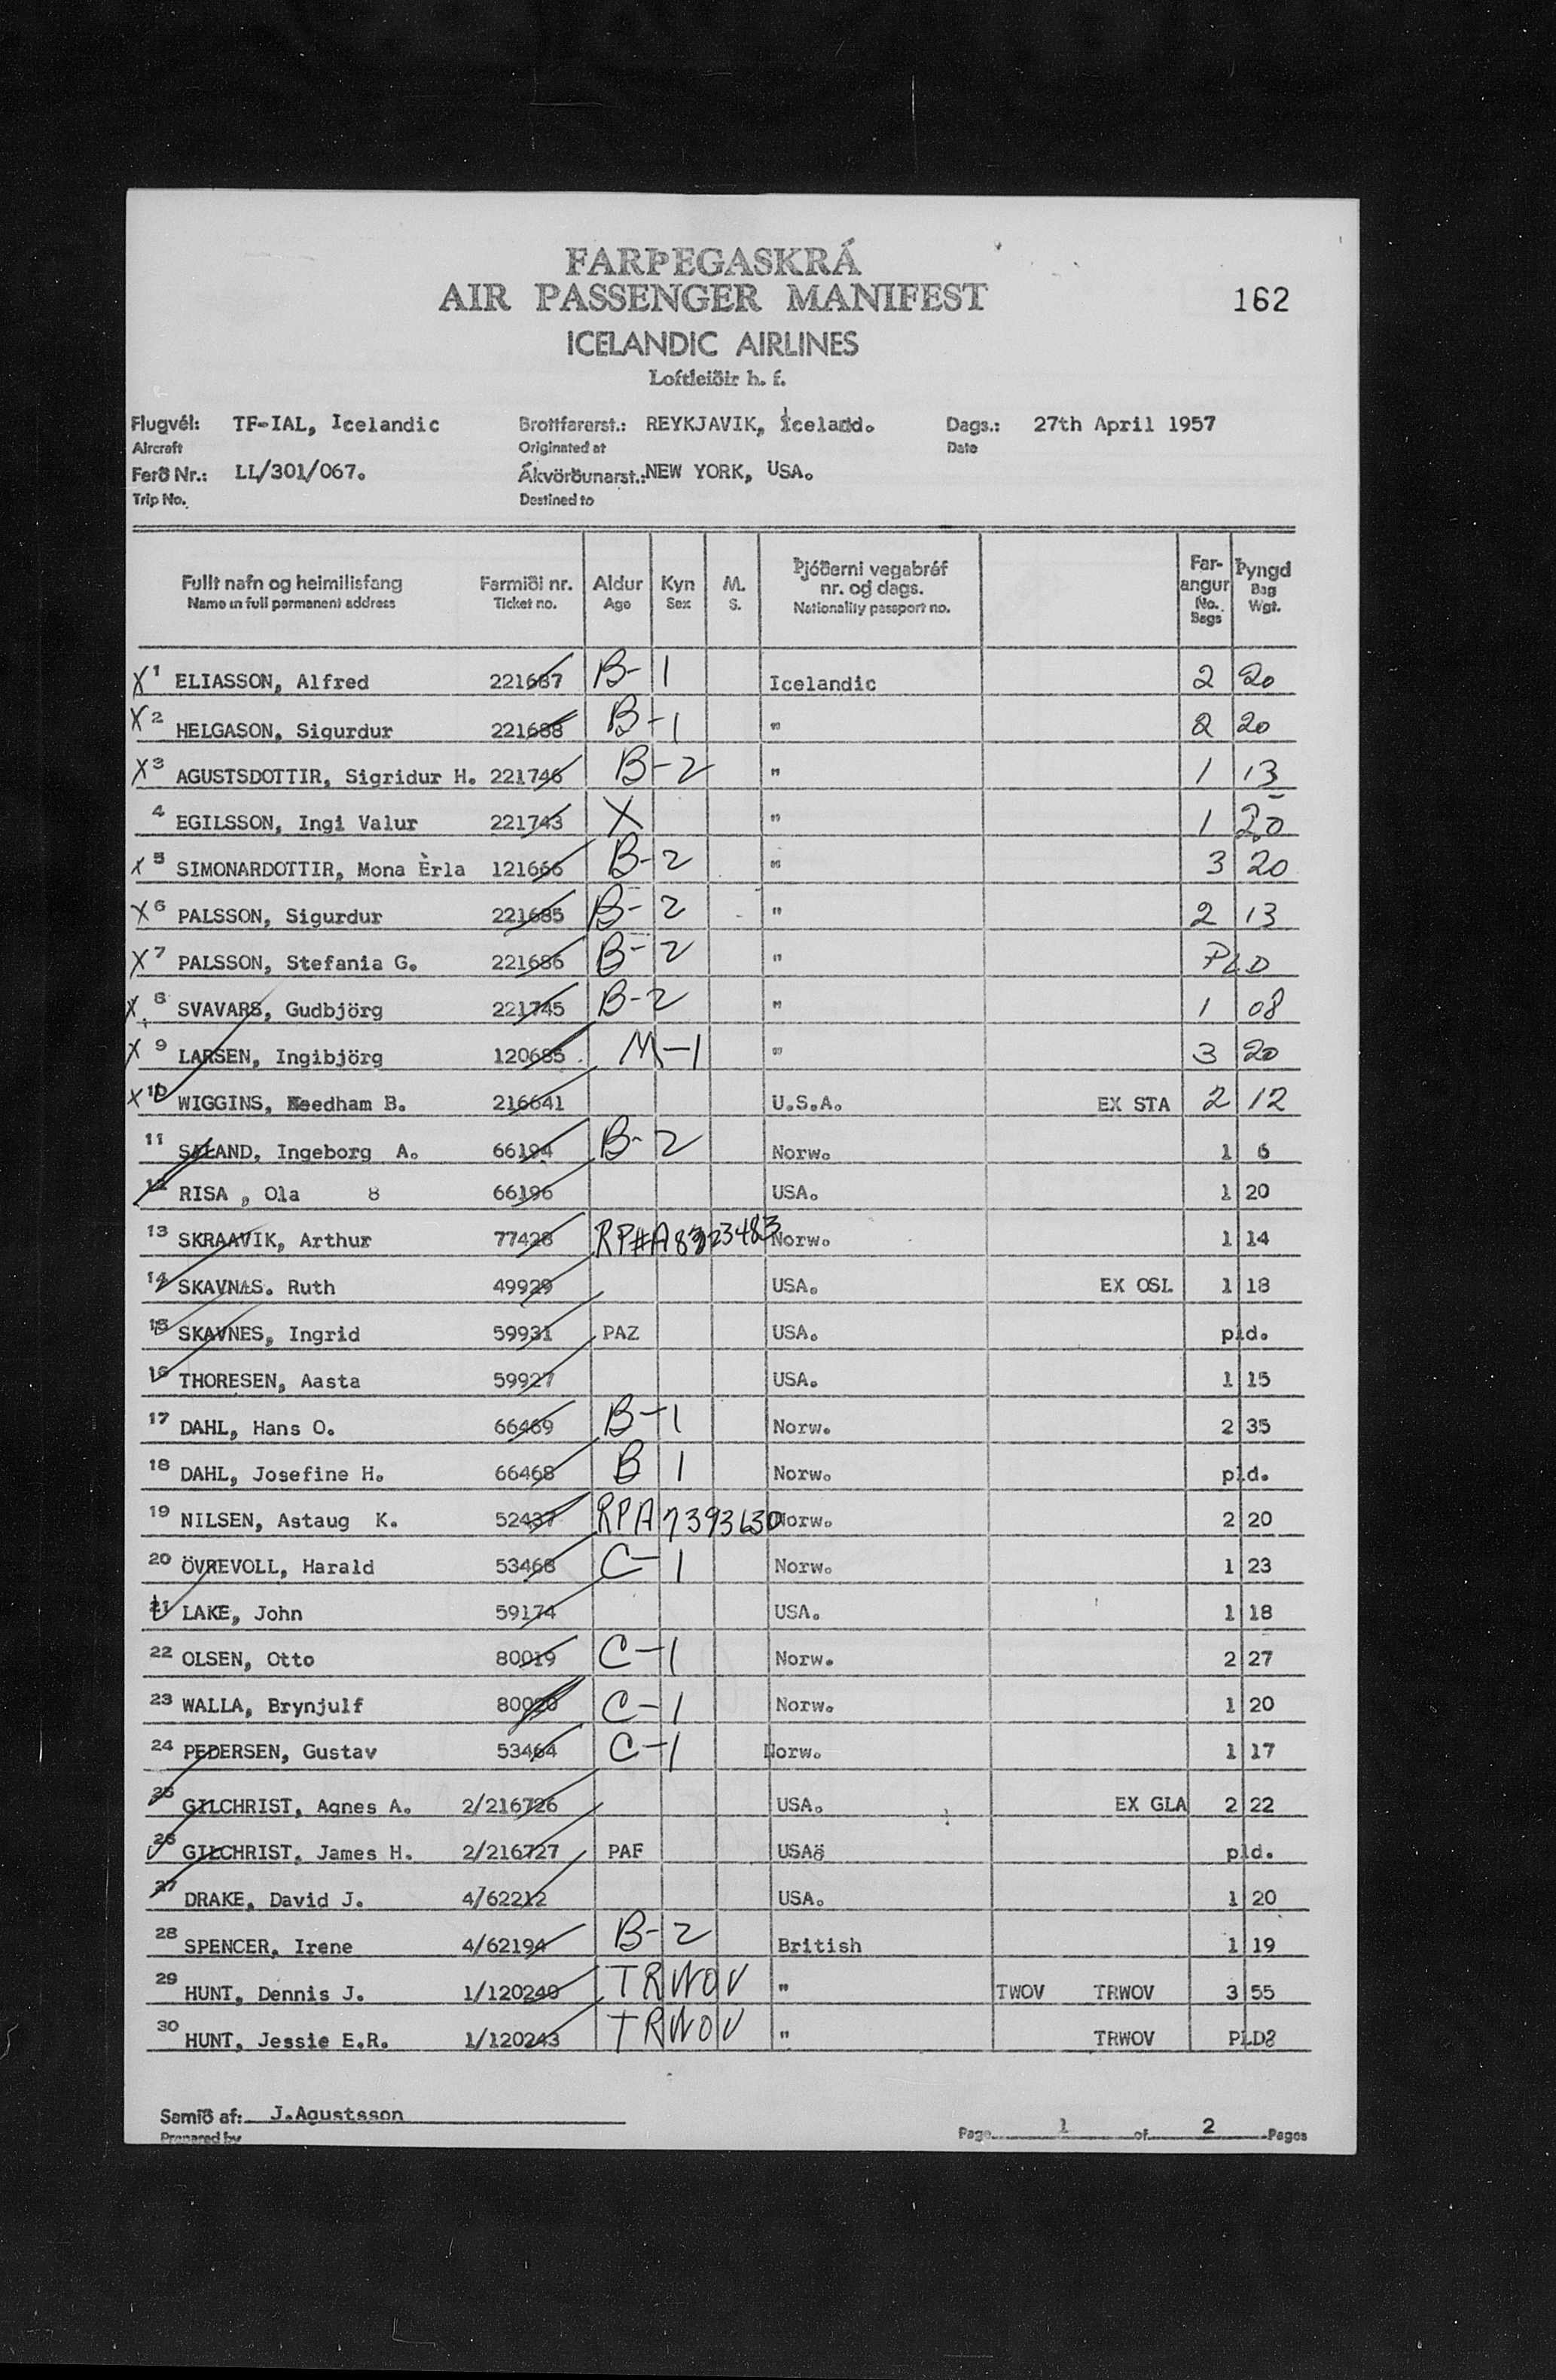 FARÞEGASKRÁ
AIR PASSENGER MANIFEST 162
ICELANDIC AIRLINES
Loftleiðir h. f.
Flugvél: TF-IAL, Icelandic Brottfararst.: REYKJAVIK, Iceland. Dags.: 27th April 1957
Aircraft Originated at Date
Ferð Nr.: LL/301/067. Ákvörðunarst.: NEW YORK, USA.
Trip No. Destined to
Fullt nafn og heimilisfang Farmiði nr. Aldur Kyn M. Þjóðerni vegabréf nr. og dags. Far-angur Þyngd
Name in full permanent address Ticket no. Age Sex S. Nationality passport no. No. Bags Bag Wgt.
X 1 ELIASSON, Alfred 221687 B-1 Icelandic 2 20
X 2 HELGASON, Sigurdur 221688 B-1 " 2 20
X 3 AGUSTSDOTTIR, Sigridur H. 221746 B-2 " 1 13
4 EGILSSON, Ingi Valur 221743 X " 1 20
X 5 SIMONARDOTTIR, Mona Èrla 121666 B-2 " 3 20
X 6 PALSSON, Sigurdur 221685 B-2 " 2 13
X 7 PALSSON, Stefania G. 221686 B-2 " PLD
X 8 SVAVARS, Gudbjörg 221745 B-2 " 1 08
X 9 LARSEN, Ingibjörg 120685 M-1 " 3 20
X 10 WIGGINS, Needham B. 216641 U.S.A. EX STA 2 12
11 SÆLAND, Ingeborg A. 66194 B-2 Norw. 1 6
12 RISA , Ola 8 66196 USA. 1 20
13 SKRAAVIK, Arthur 77428 RP#A8323483 Norw. 1 14
14 SKAVNES. Ruth 49929 USA. EX OSL 1 18
15 SKAVNES, Ingrid 59931 PAZ USA. pld.
16 THORESEN, Aasta 59927 USA. 1 15
17 DAHL, Hans O. 66469 B-1 Norw. 2 35
18 DAHL, Josefine H. 66468 B 1 Norw. pld.
19 NILSEN, Astaug K. 52437 RPA7393630 Norw. 2 20
20 ÖVREVOLL, Harald 53468 C-1 Norw. 1 23
21 LAKE, John 59174 USA. 1 18
22 OLSEN, Otto 80019 C-1 Norw. 2 27
23 WALLA, Brynjulf 80020 C-1 Norw. 1 20
24 PEDERSEN, Gustav 53464 C-1 Norw. 1 17
25 GILCHRIST, Agnes A. 2/216726 USA. EX GLA 2 22
26 GILCHRIST, James H. 2/216727 PAF USAö pld.
27 DRAKE, David J. 4/62212 USA. 1 20
28 SPENCER, Irene 4/62194 B-2 British 1 19
29 HUNT, Dennis J. 1/120240 TRWOV " TWOV TRWOV 3 55
30 HUNT, Jessie E.R. 1/120243 TRWOV " TRWOV PLD?
Samið af: J.Agustsson
Prepared by Page 1 of 2 Pages